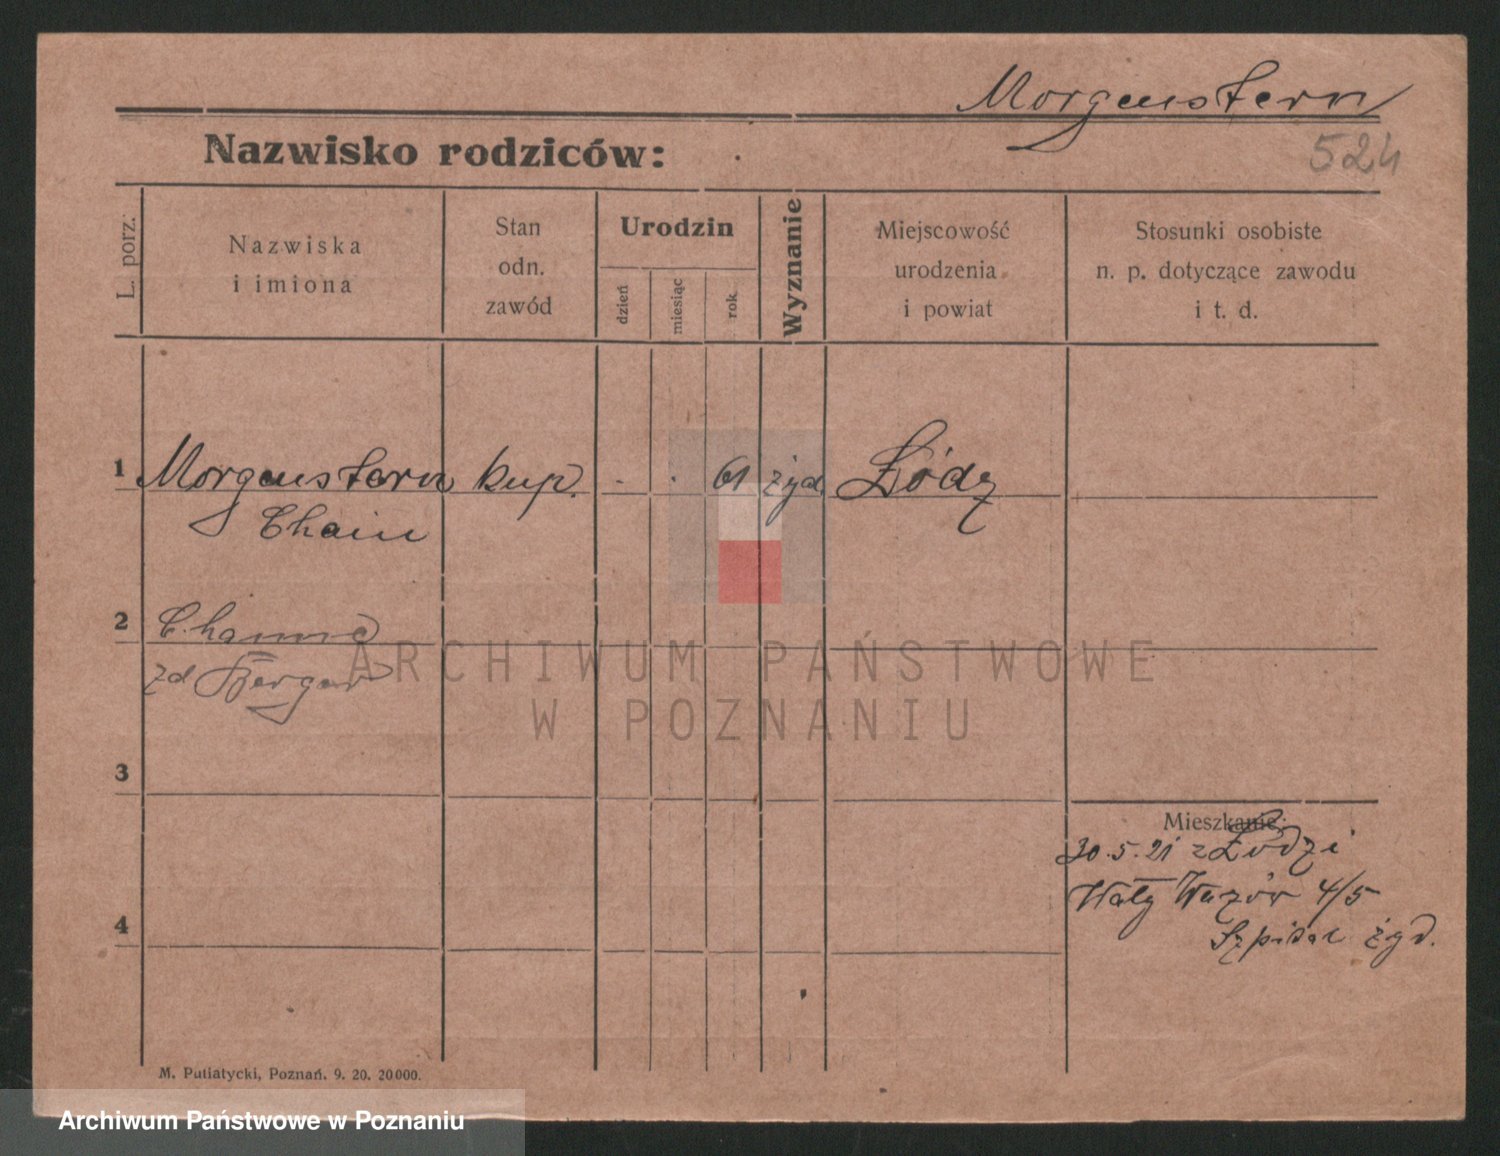 Morgenstern
524
Nazwisko rodziców:
L. porz.
Nazwiska
i imiona
Stan
odn.
zawód
Urodzin
dzień
miesiąc
rok
Wyznanie
Miejscowość
urodzenia
i powiat
Stosunki osobiste
n. p. dotyczące zawodu
i t. d.
1 Morgenstern kup. . . 61 żyd. Łódź
Chaim
2 Channe
zd Berger
3
Mieszkanie:
30.5.21 z Łodzi
Wały Wazów 4/5
4
Szpital żyd.
M. Putiatycki, Poznań. 9. 20. 20000.
ARCHIWUM PAŃSTWOWE
W POZNANIU
Archiwum Państwowe w Poznaniu